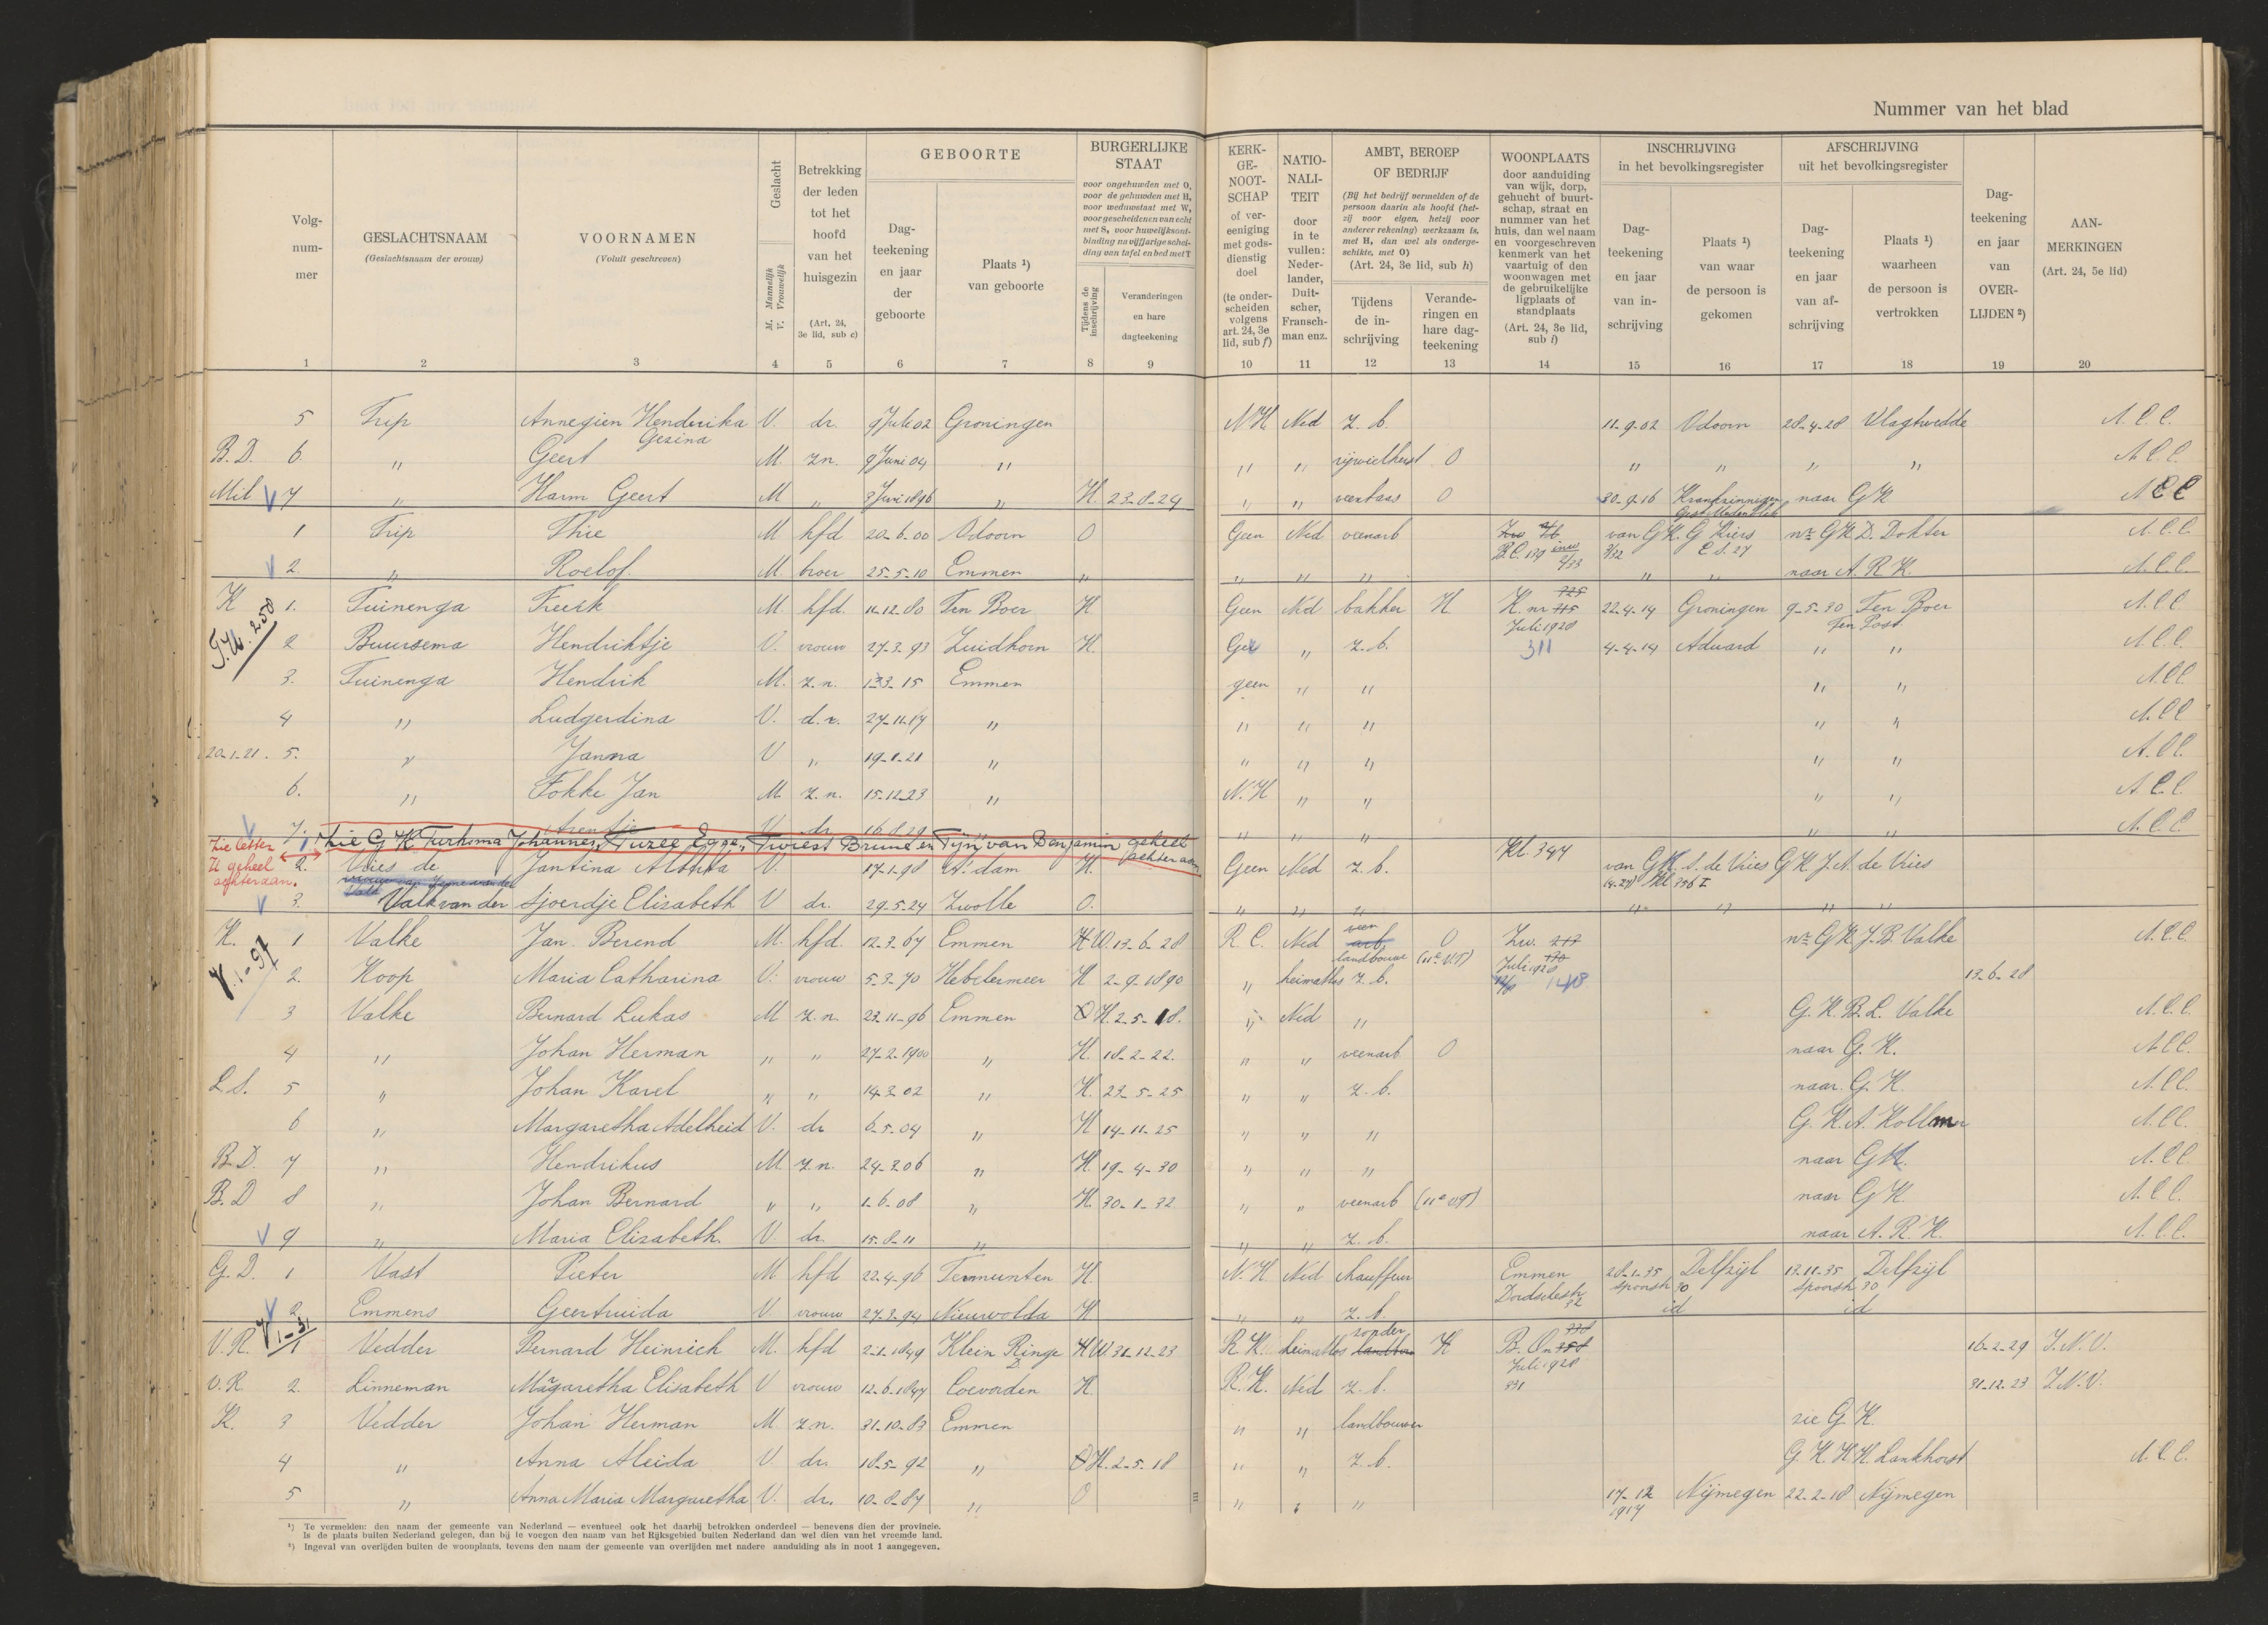 Nummer van het blad
Volg-
num-
mer
1
GESLACHTSNAAM
(Geslachtsnaam der vrouw)
2
VOORNAMEN
(Voluit geschreven)
3
Geslacht
M. Mannelijk
V. Vrouwelijk
4
Betrekking
der leden
tot het
hoofd
van het
huisgezin
(Art. 24,
3e lid, sub c)
5
GEBOORTE
Dag-
teekening
en jaar
der
geboorte
6
Plaats ¹)
van geboorte
7
BURGERLIJKE
STAAT
voor ongehuwden met O,
voor de gehuwden met H,
voor weduwstaat met W,
voor gescheidenen van echt
met S, voor huwelijksont-
binding na vijfjarige schei-
ding van tafel en bed met T
Tijdens de
inschrijving
8
Veranderingen
en hare
dagteekening
9
KERK-
GE-
NOOT-
SCHAP
of ver-
eeniging
met gods-
dienstig
doel
(te onder-
scheiden
volgens
art. 24, 3e
lid, sub f)
10
NATIO-
NALI-
TEIT
door
in te
vullen:
Neder-
lander,
Duit-
scher,
Fransch-
man enz.
11
AMBT, BEROEP
OF BEDRIJF
(Bij het bedrijf vermelden of de
persoon daarin als hoofd (het-
zij voor eigen, hetzij voor
anderer rekening) werkzaam is,
met H, dan wel als onderge-
schikte, met O)
(Art. 24, 3e lid, sub h)
Tijdens
de in-
schrijving
12
Verande-
ringen en
hare dag-
teekening
13
WOONPLAATS
door aanduiding
van wijk, dorp,
gehucht of buurt-
schap, straat en
nummer van het
huis, dan wel naam
en voorgeschreven
kenmerk van het
vaartuig of den
woonwagen met
de gebruikelijke
ligplaats of
standplaats
(Art. 24, 3e lid,
sub i)
14
INSCHRIJVING
in het bevolkingsregister
Dag-
teekening
en jaar
van in-
schrijving
15
Plaats ¹)
van waar
de persoon is
gekomen
16
AFSCHRIJVING
uit het bevolkingsregister
Dag-
teekening
en jaar
van af-
schrijving
17
Plaats ¹)
waarheen
de persoon is
vertrokken
18
Dag-
teekening
en jaar
van
OVER-
LIJDEN ²)
19
AAN-
MERKINGEN
(Art. 24, 5e lid)
20
5 Trip Annegien Henderika Gezina V. dr. Groningen NH Ned z. b. 11-9-02 Odoorn 28-4-28 Vlagtwedde A.C.C.
B.D. 6 " Geert M. zn. 9 Juni 04 " " " rijwielherst O " " " " A.C.C.
Mil V 7 " Harm Geert M " " H. 23-8-24 " " veenbaas O 30-9-16 naar GK A.C.C.
1 Trip Thie M hfd 20-6-00 Odoorn O Geen Ned veenarb van GK. G Kiers nr GK D. Dokter A.C.C.
V 2. " Roelof M. broer 25-5-10 Emmen " " " " " " naar A.R.K. A.C.C.
K 1. Tuinenga Freerk M. hfd. 11-12-80 Ten Boer H Geen Ned bakker H K. nr Juli 1928 22-4-14 Groningen 9-5-30 Ten Boer Ten Post A.C.C.
2 Buursema Hendriktje V. vrouw 27-3-93 Zuidhorn H. " z. b. 311 4-4-14 Aduard " " A.C.C.
3. Tuinenga Hendrik M. z.n. Emmen geen " " " " A.C.C.
4 " Ludgerdina V. d.r. 27-11-17 " " " " " " A.C.C.
20-1-21. 5. " Janna V " 19-1-21 " " " " " " A.C.C.
6. " Fokke Jan M. z.n. 15-12-23 " N.H " " " " A.C.C.
V 7. Arentje V. dr. 16-8-29 " " " " " " A.C.C.
1 zie GK Turksma Johannes, Tuzee Egge, Twiest Brune en Tijn van Benjamin geheel achteraan
Zie letter U geheel achteraan.
2. Vries de Jantina V. 17-1-98 A'dam H. Geen Ned z. b. Kl. 347 van GK. S. de Vries GK J.A. de Vries
V 3. Valk van der Sjoerdje Elisabeth V dr. 29-5-24 Zwolle O. " " " " " " "
K. 1 Valke Jan Berend M. hfd. 12-3-67 Emmen H W. 13-6-28 R.C. Ned veen arb. landbouw O Zw. 213 Juli 1928 nr GK J.B. Valke A.C.C.
2. Koop Maria Catharina V. vrouw 5-3-70 Hebelermeer H 2-9-1890 " heimatlos z. b. 13-6-28
3 Valke Bernard Lukas M z.n. 23-11-96 Emmen O H. 2-5-18. " Ned " G.K. B.L. Valke A.C.C.
4 " Johan Herman " " 27-2-1900 " H. 18-2-22. " " veenarb O naar G.K. A.C.C.
L.S. 5 " Johan Karel " " 14-3-02 " H. 23-5-25 " " z. b. naar G.K. A.C.C.
6 " Margaretha Adelheid V. dr 6-5-04 " H 14-11-25 " " " G.K. A. Kollmer A.C.C.
B.D. 7 " Hendrikus M. z.n. 24-3-06 " H 19-4-30 " " " naar GK. A.C.C.
B.D 8 " Johan Bernard " " 1-6-08 " H. 30-1-32 " " veenarb naar GK A.C.C.
V 9 " Maria Elizabeth. V. dr. 15-8-11 " " " z. b. naar A.R.K. A.C.C.
G.D. 1 Vast Pieter M hfd 22-4-96 Termunten H. N.H. Ned chauffeur Emmen 28-1-35 Delfzijl 13-11-35 Delfzijl
V 2 Emmens Geertruida V vrouw 27-3-94 Nieuwolda H " " z. b. id id
V.R. 1 Vedder Bernard Heinrich M. hfd 2-1-1849 Klein Ringe H W 31-12-23 R.K. heimatlos zonder landbouw H Juli 1928 16-2-29 J.N.V.
V.R. 2. Linneman Margaretha Elisabeth V vrouw 12-6-1847 Coevorden H. R.K. Ned z. b. 331 31-12-23 J.N.V.
K. 3 Vedder Johan Herman M z.n. 31-10-83 Emmen " " landbouwer zie G.K.
4 " Anna Aleida V. dr. 18-5-92 " O H. 2-5-18 " " z. b. G.K. H.H. Lankhorst A.C.C.
5 " Anna Maria Margaretha V. dr. 10-8-87 " O " " " 17-12 1917 Nijmegen 22-2-18 Nijmegen
¹) Te vermelden: den naam der gemeente van Nederland — eventueel ook het daarbij betrokken onderdeel — benevens dien der provincie.
Is de plaats buiten Nederland gelegen, dan bij te voegen den naam van het Rijksgebied buiten Nederland dan wel dien van het vreemde land.
²) Ingeval van overlijden buiten de woonplaats, tevens den naam der gemeente van overlijden met nadere aanduiding als in noot 1 aangegeven.